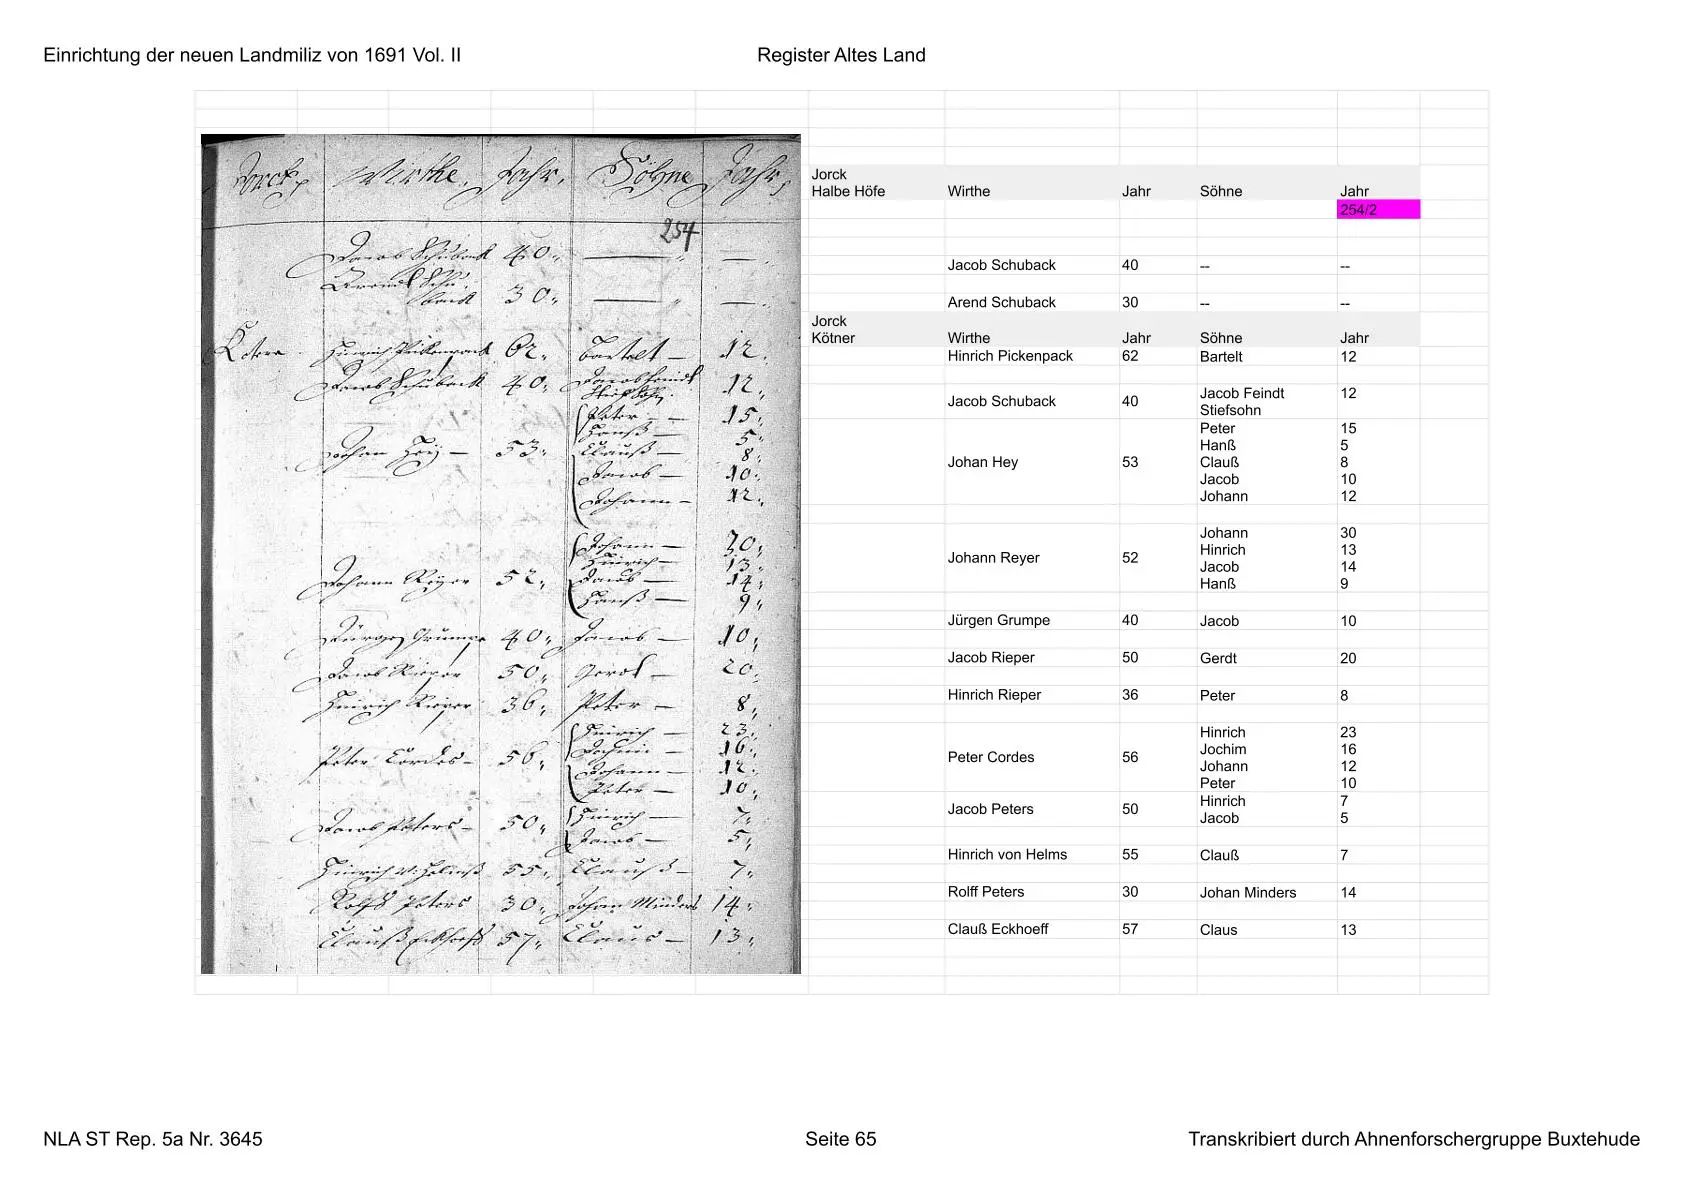 Einrichtung der neuen Landmiliz von 1691 Vol. II
Register Altes Land
Jorck Wirthe, Jahr, Söhne Jahr,
254
Jacob Schuback 40, — —
Arendt Schu,
back 30, — —
Kötner Hinrich Pickenpack 62, Bartelt — 12,
Jacob Schuback 40, Jacob Feindt 12,
Stiefsohn
Peter — 15,
Hanß — 5,
Johan Hey — 53, Clauß — 8,
Jacob — 10,
Johann — 12,
Johann — 30,
Hinrich — 13,
Johann Reyer 52, Jacob — 14,
Hanß — 9,
Jürgen Grumpe 40, Jacob — 10,
Jacob Rieper 50, Gerdt — 20,
Hinrich Rieper 36, Peter — 8,
Hinrich — 23,
Peter Cordes — 56, Jochim — 16,
Johann — 12,
Peter — 10,
Jacob Peters — 50, Hinrich — 7,
Jacob — 5,
Hinrich v. Helmß 55, Clauß — 7,
Rolff Peters 30, Johan Minders 14,
Clauß Eckhoeff 57, Claus — 13,
Jorck
Halbe Höfe Wirthe Jahr Söhne Jahr
254/2
Jacob Schuback 40 -- --
Arend Schuback 30 -- --
Jorck
Kötner Wirthe Jahr Söhne Jahr
Hinrich Pickenpack 62 Bartelt 12
Jacob Schuback 40 Jacob Feindt 12
Stiefsohn
Peter 15
Hanß 5
Johan Hey 53 Clauß 8
Jacob 10
Johann 12
Johann 30
Hinrich 13
Johann Reyer 52 Jacob 14
Hanß 9
Jürgen Grumpe 40 Jacob 10
Jacob Rieper 50 Gerdt 20
Hinrich Rieper 36 Peter 8
Hinrich 23
Peter Cordes 56 Jochim 16
Johann 12
Peter 10
Jacob Peters 50 Hinrich 7
Jacob 5
Hinrich von Helms 55 Clauß 7
Rolff Peters 30 Johan Minders 14
Clauß Eckhoeff 57 Claus 13
NLA ST Rep. 5a Nr. 3645
Seite 65
Transkribiert durch Ahnenforschergruppe Buxtehude